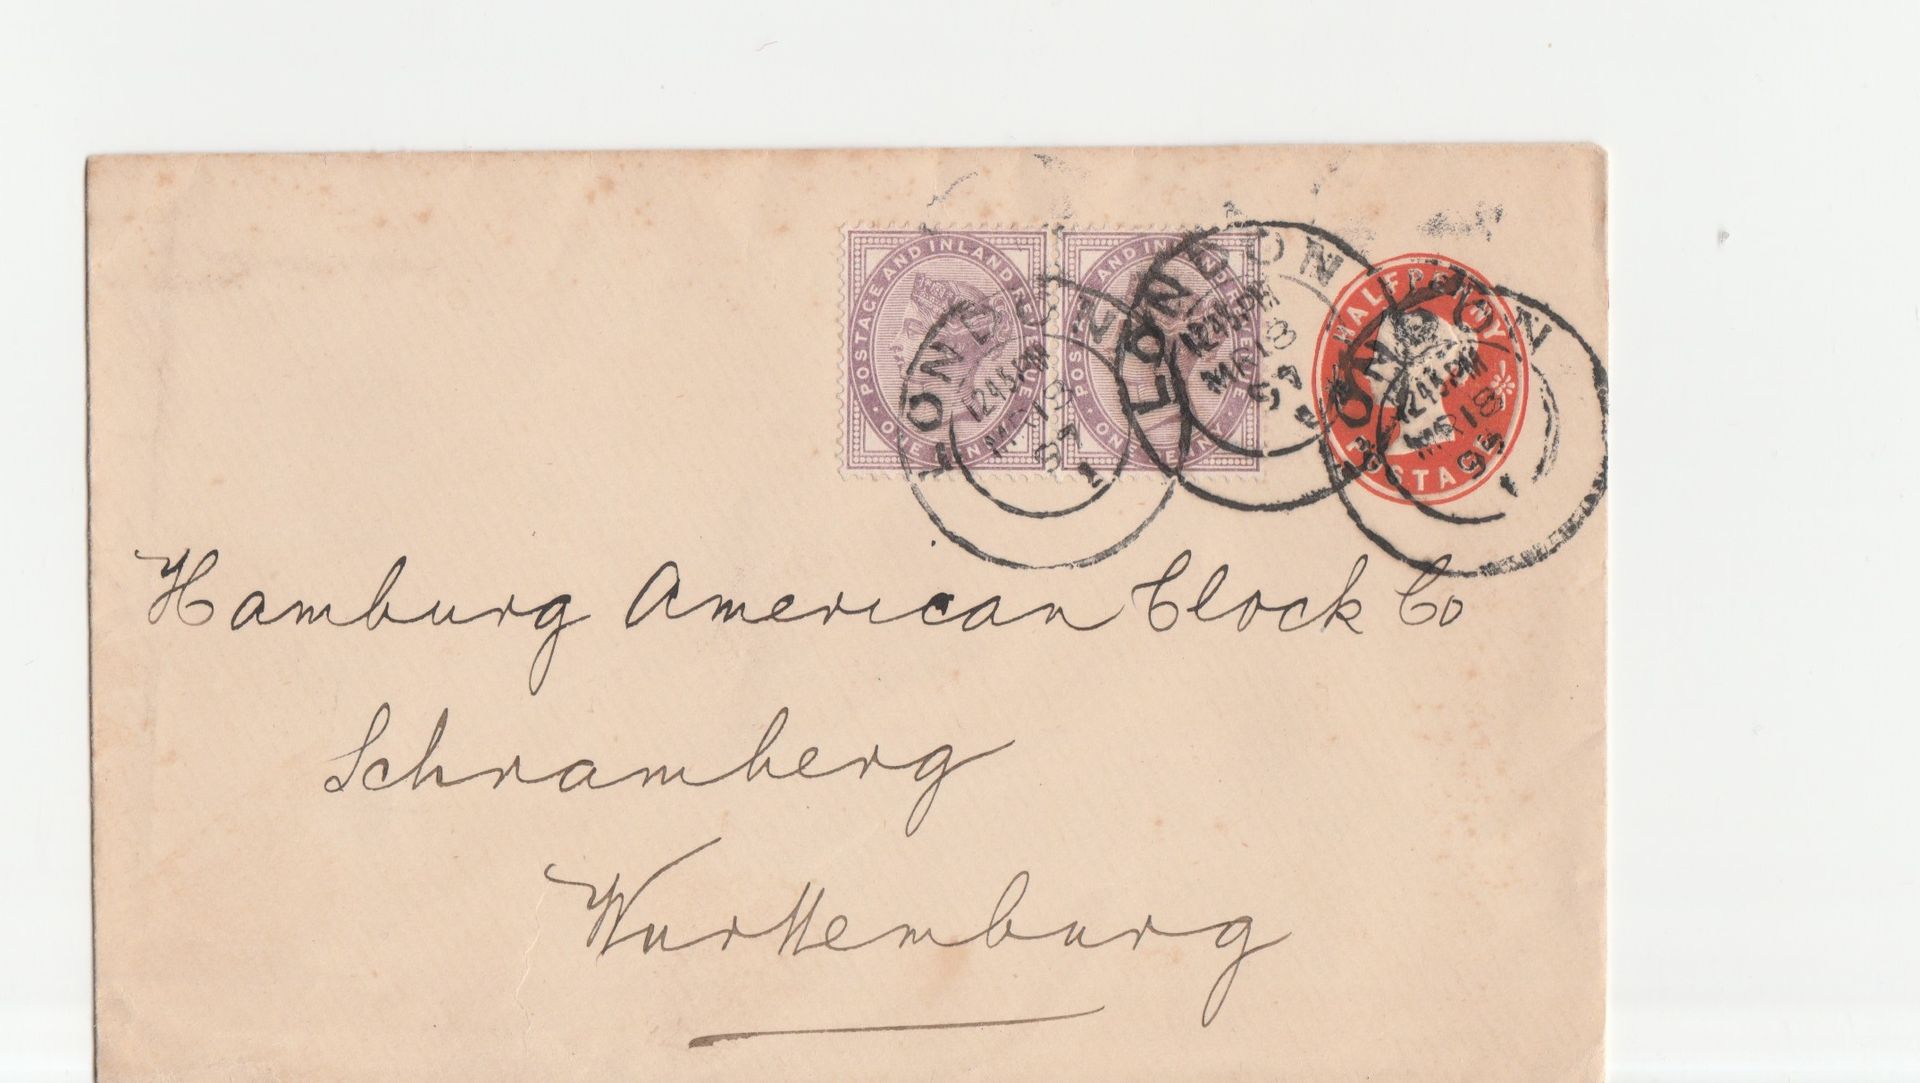 POSTAGE AND INLAND REVENUE
ONE PENNY
POSTAGE AND INLAND REVENUE
ONE PENNY
HALFPENNY
POSTAGE
LONDON
12 45 PM
MR 18
97
1
LONDON
12 45 PM
MR 18
97
LONDON
12 45 PM
MR 18
1
Hamburg American Clock Co
Schramberg
Wurttemburg